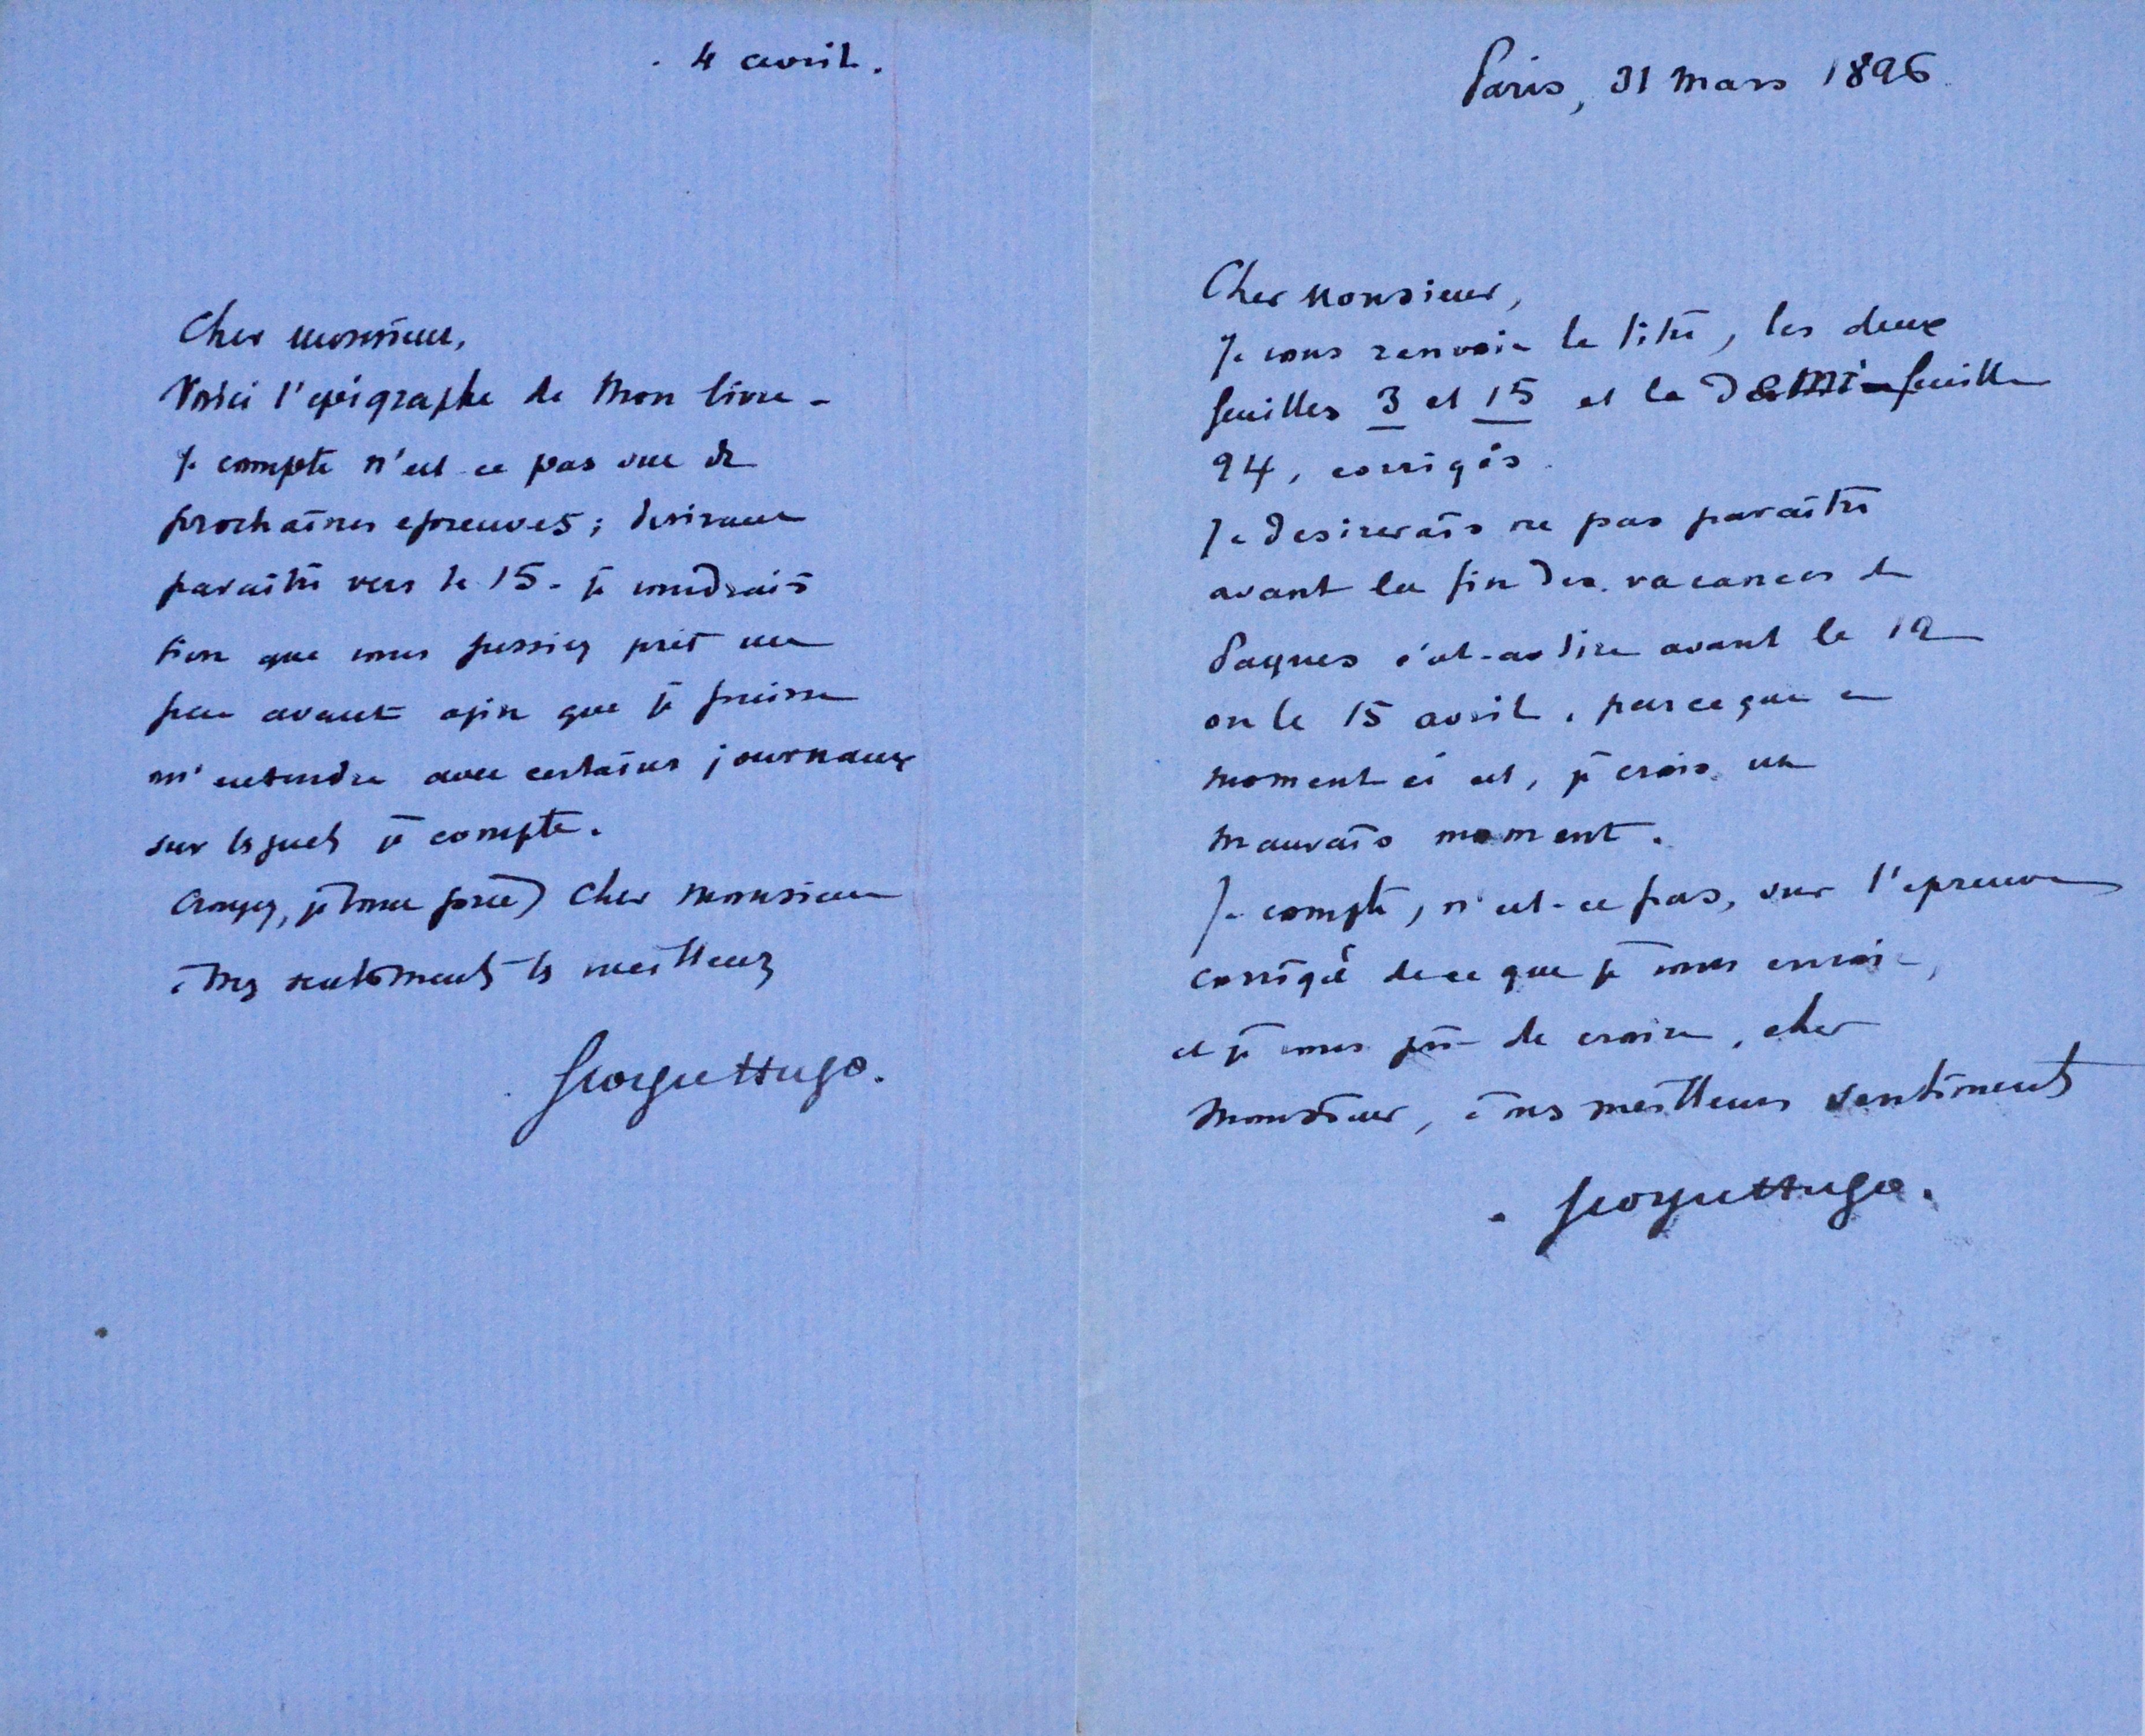 . 4 avril.
Cher monsieur,
Voici l'epigraphe de mon livre -
Je compte n'est-ce pas sur de
prochaines epreuves; desireux
paraitre vers le 15 - je voudrais
bien que vous fussiez prêt un
peu avant afin que je puisse
m'entendre avec certains journaux
sur lesquels je compte.
Croyez, je vous prie, cher monsieur
à mes sentiments les meilleurs
Georges Hugo.
Paris, 31 mars 1896.
Cher Monsieur,
Je vous renvoie le titre, les deux
feuilles 3 et 15 et la demi-feuille
24, corrigés.
Je desirerais ne pas paraitre
avant la fin des vacances de
Paques c'est-a-dire avant le 12
ou le 15 avril, parce que ce
moment ci est, je crois un
mauvais moment.
Je compte, n'est-ce pas, sur l'epreuve
corrigée de ce que je vous envoie,
et je vous prie de croire, cher
Monsieur, à mes meilleurs sentiments
. Georges Hugo.